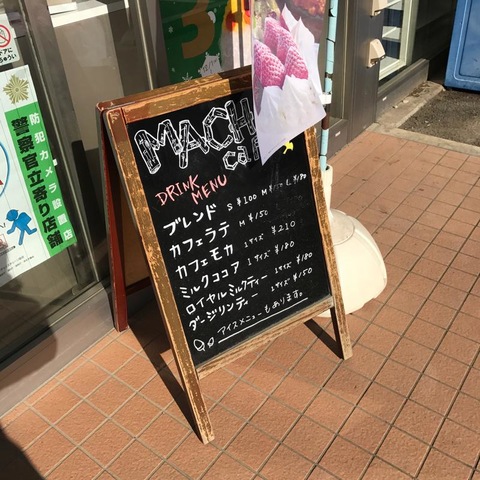 MACH
CAF
DRINK
MENU
ブレンド S ¥100 M ¥150 L ¥180
カフェラテ M ¥150
カフェモカ 1サイズ ¥210
ミルクココア 1サイズ ¥180
ロイヤルミルクティー 1サイズ ¥180
ダージリンティー 1サイズ ¥150
アイスメニューもあります。
防犯カメラ設置店
警察官立寄り店舗